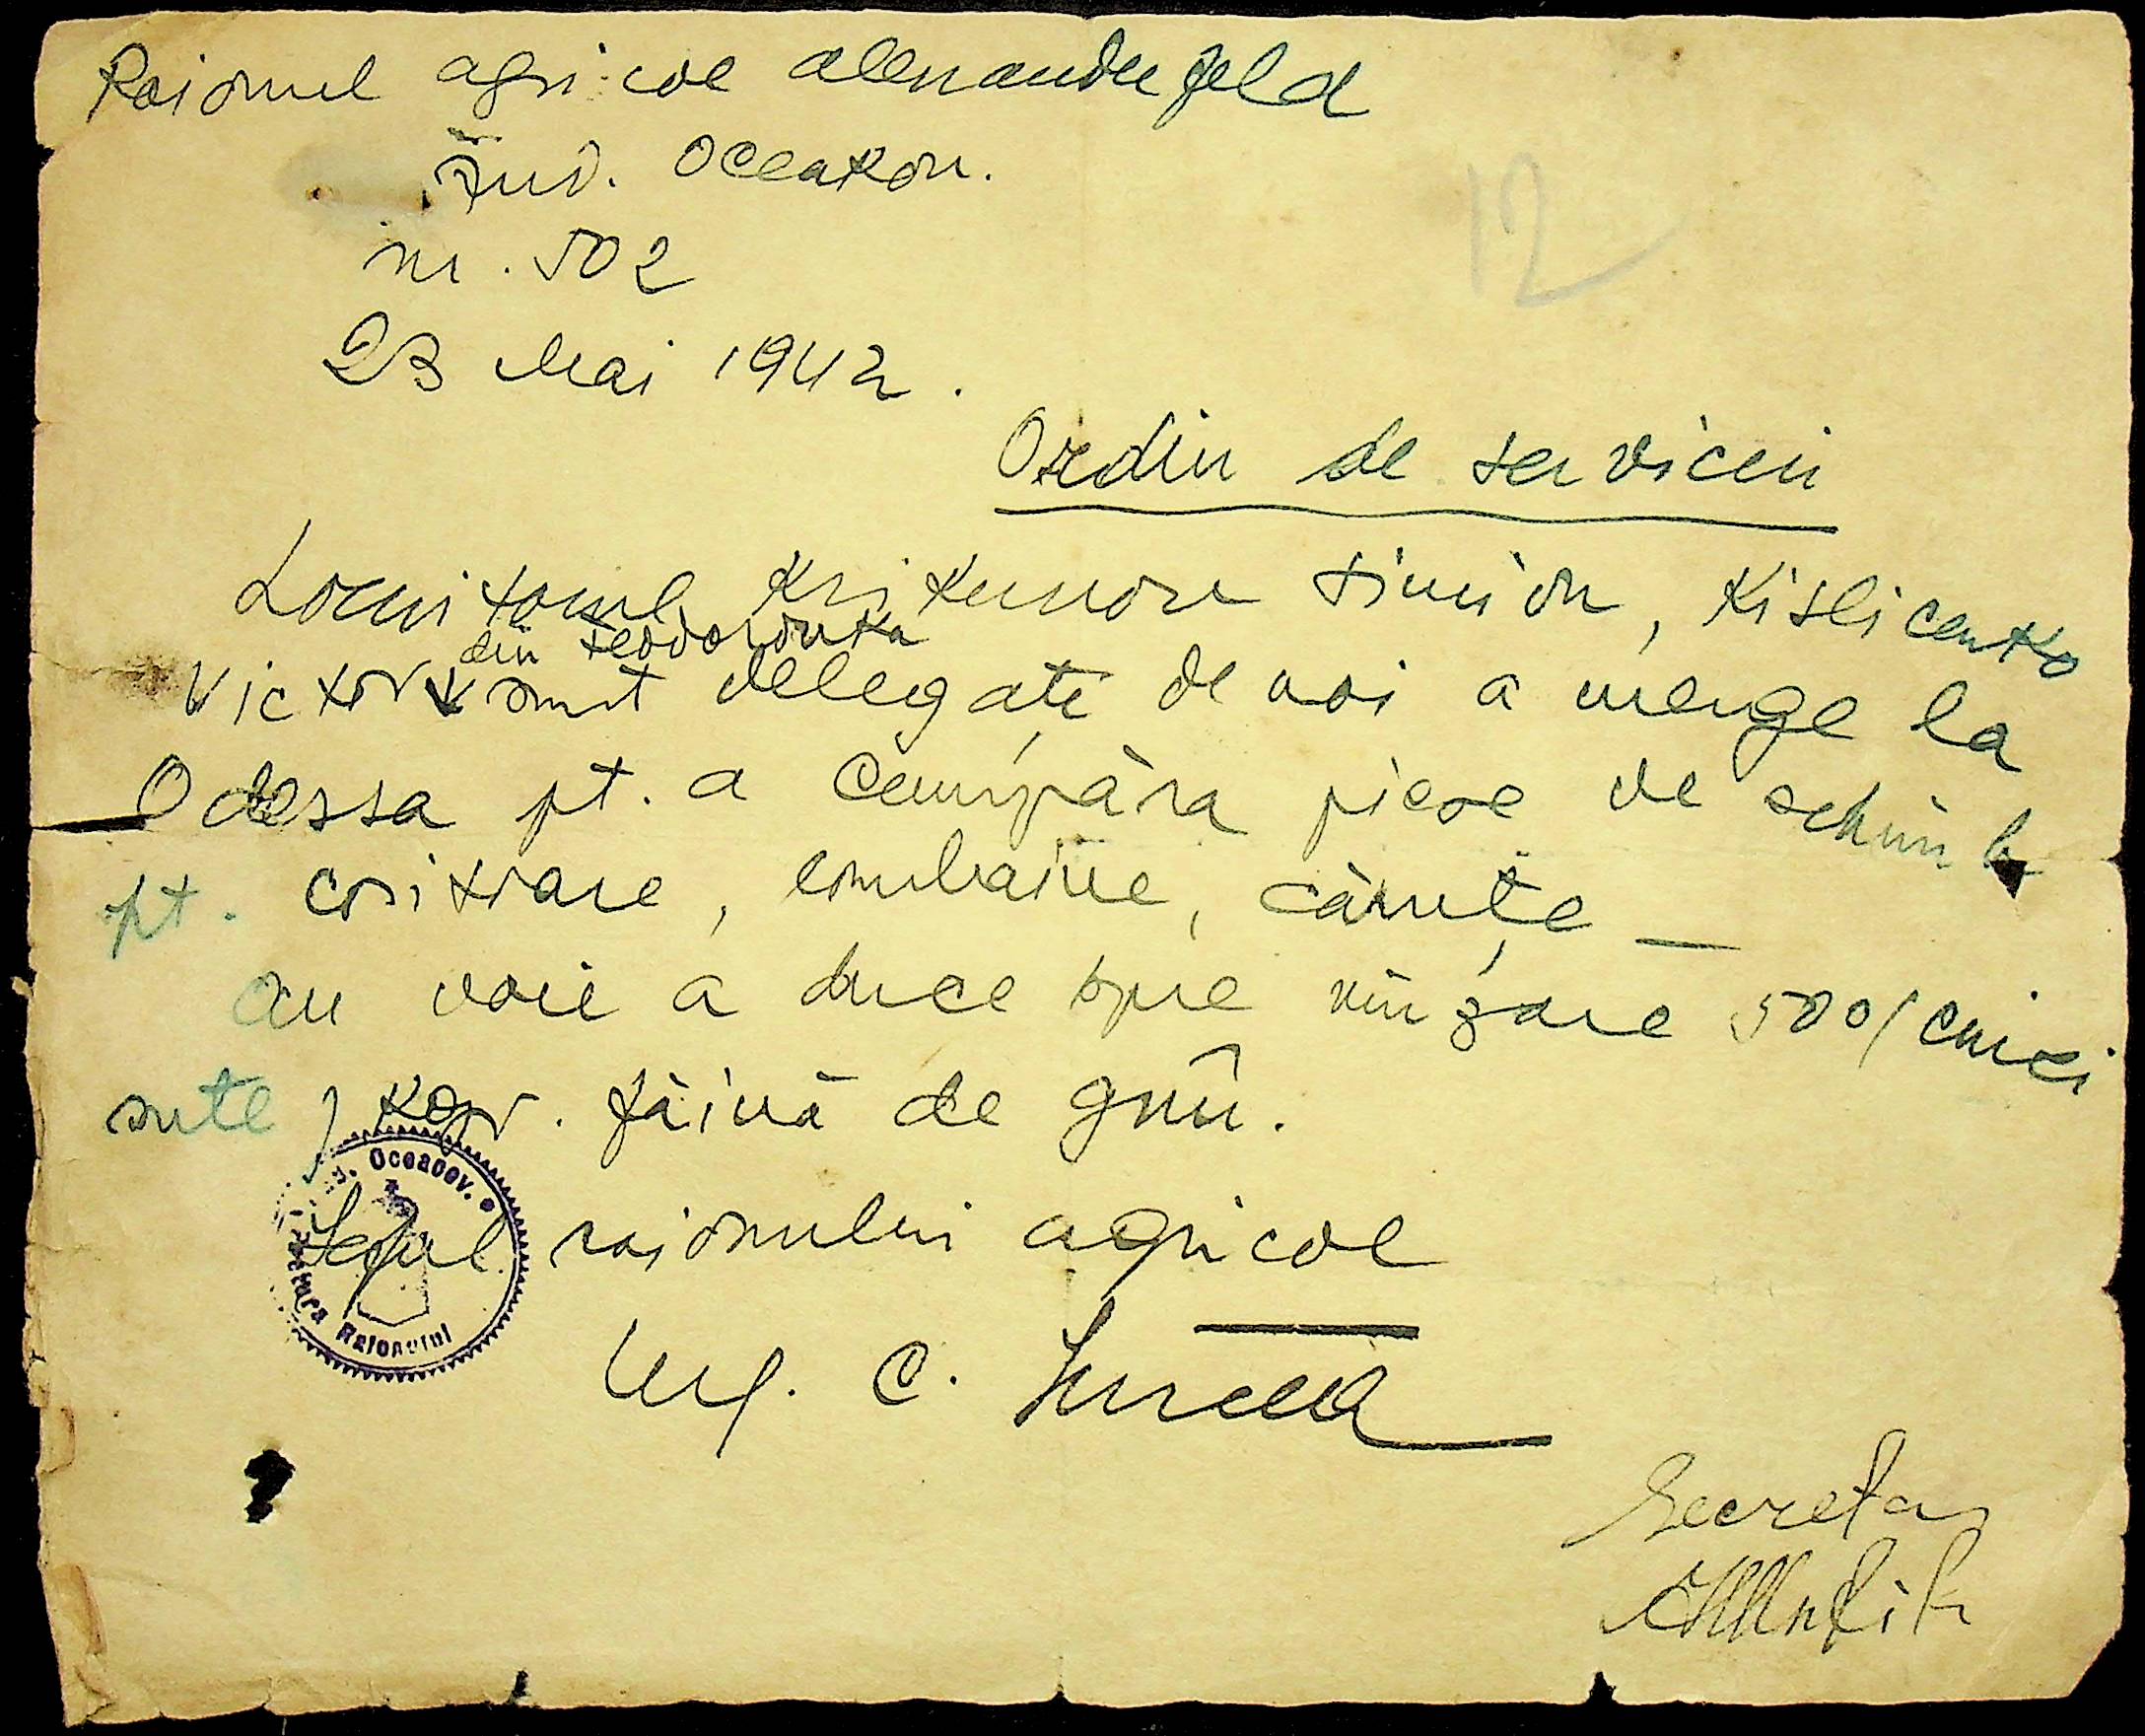 Raionul agricol alexanderfeld
Jud. Oceakov.
nr. 502
12
23 Mai 1942.
Ordin de serviciu
Locuitorul Krikunov Simion, Kislicenko
din Feodorovka
Victor sunt delegați de noi a merge la
Odessa pt. a cumpăra piese de schimb
pt. cositoare, combaine, căruțe —
au voie a duce spre vînzare 500/cinci
sute / kgr. făină de grîu.
Oceacov.
Pretura Raionului
Șeful raionului agricol
Ing. C.
Secretar